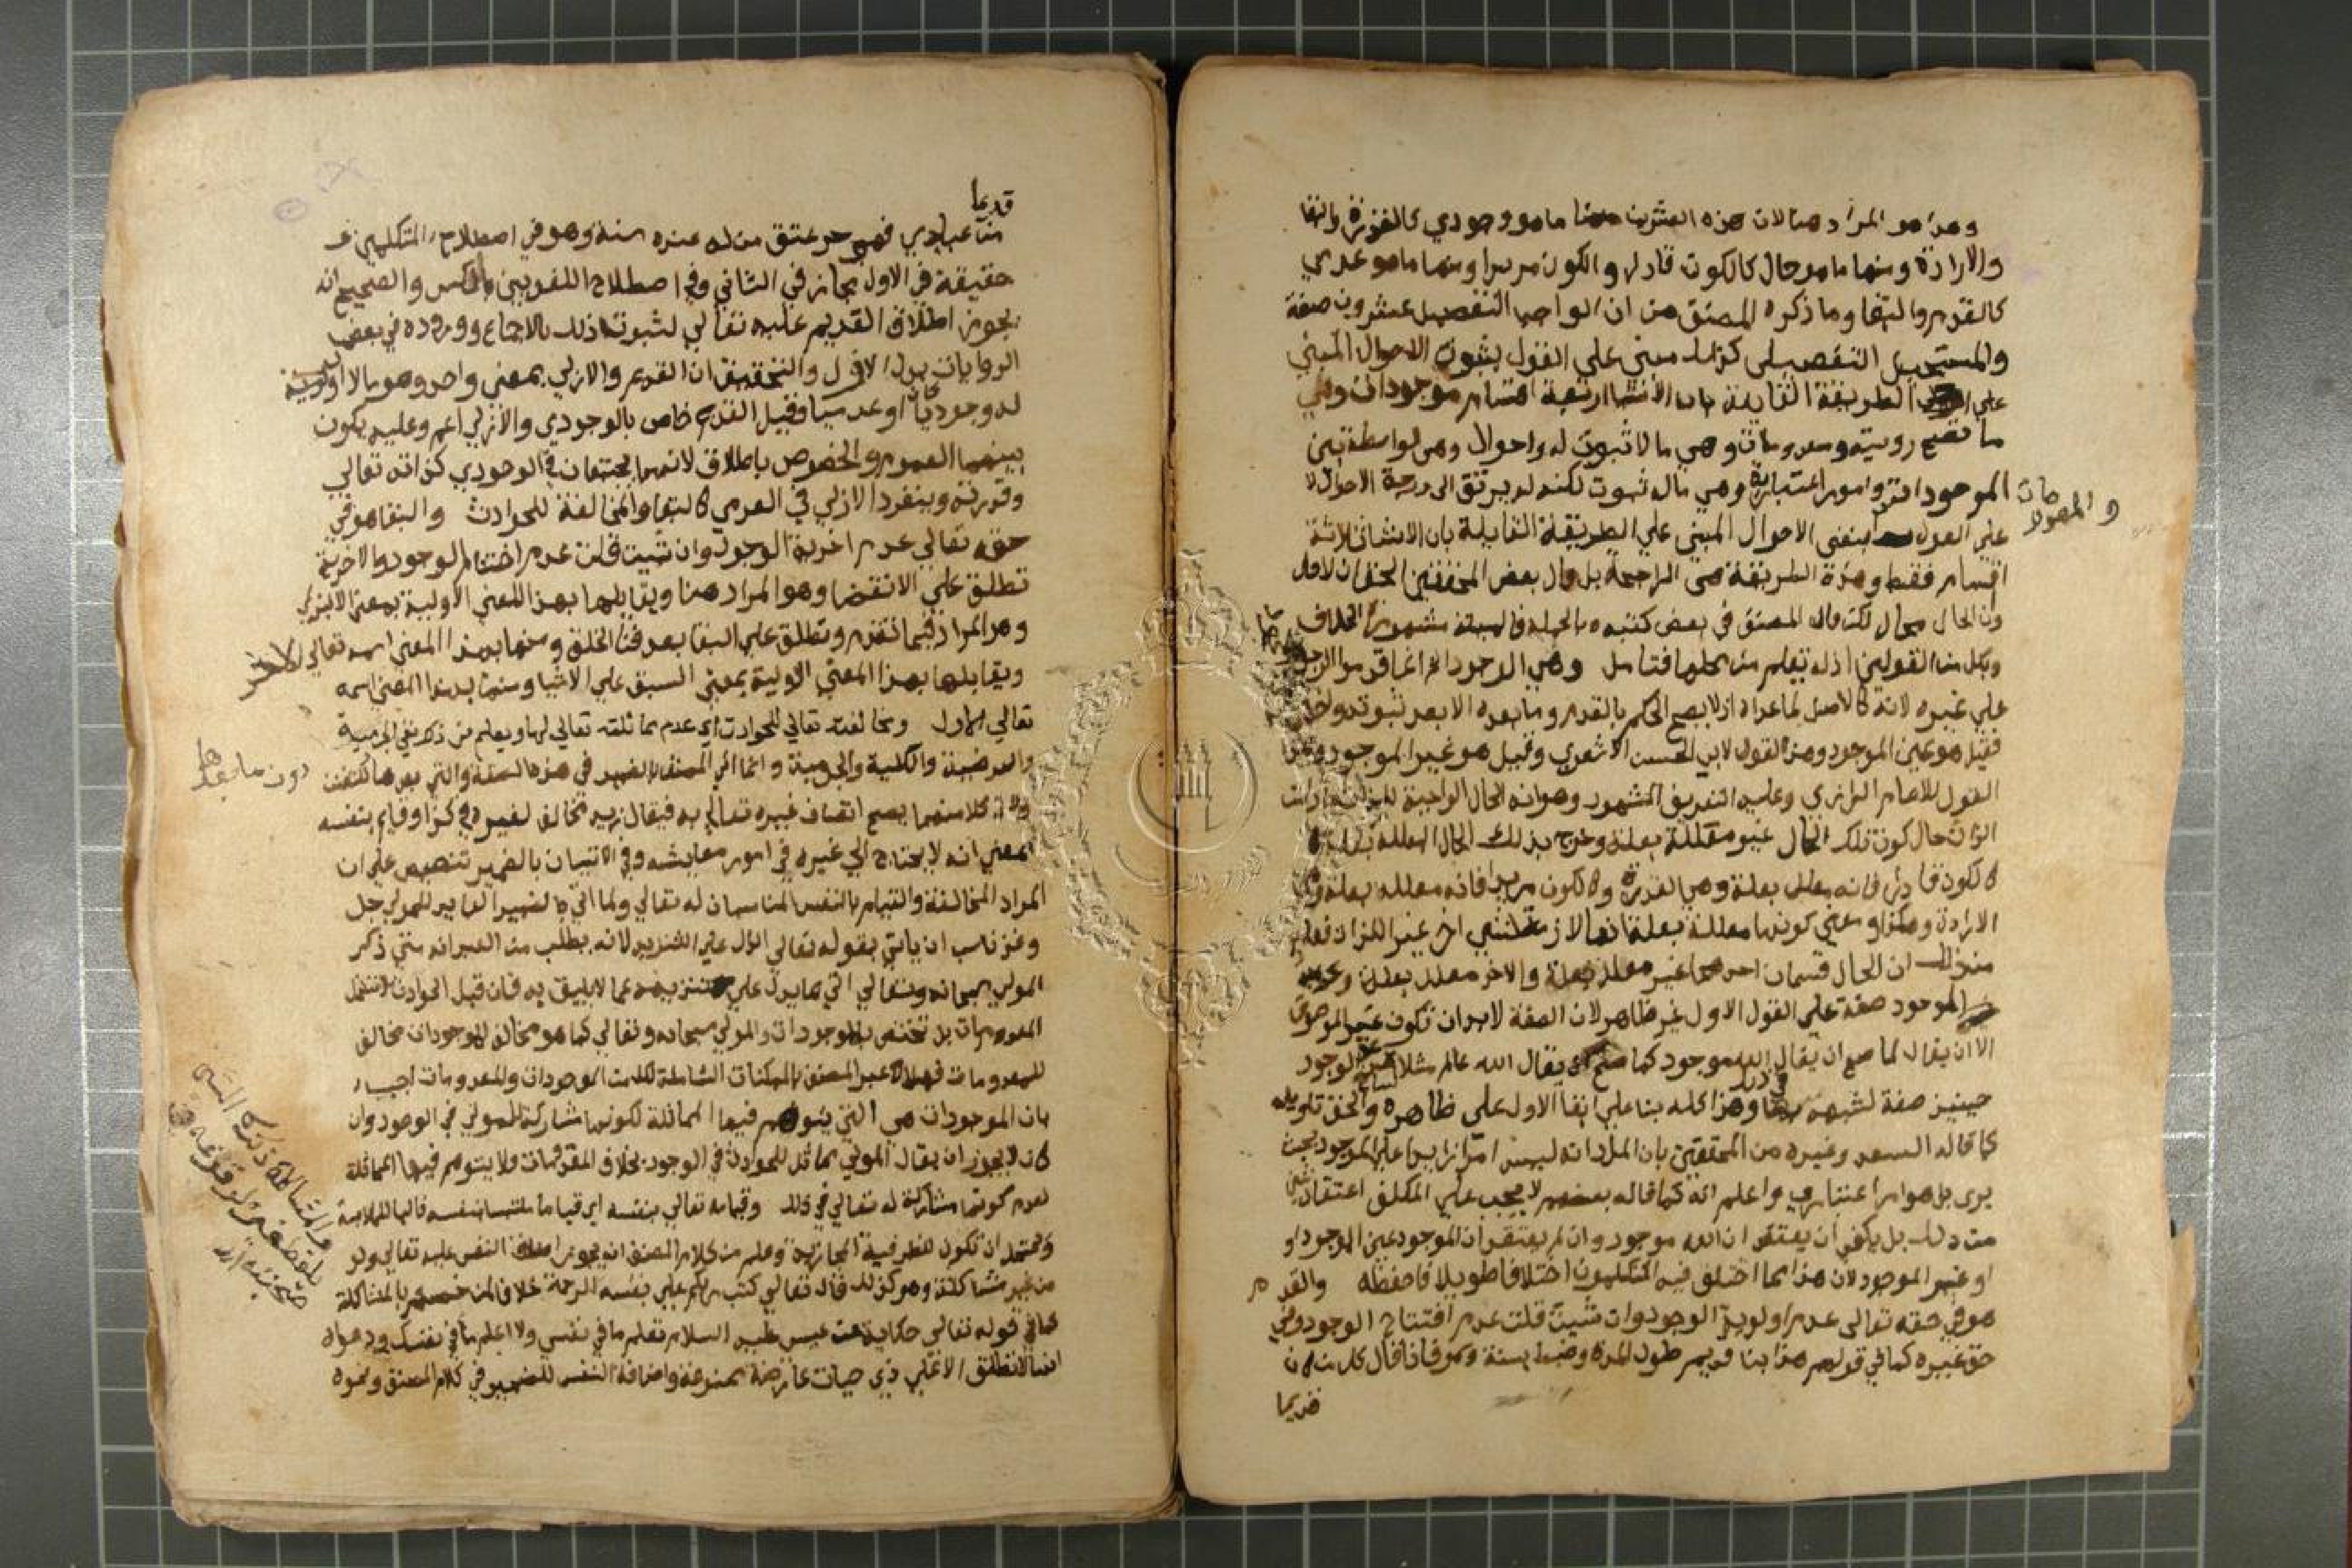 وهذا هو المراد هنا لان هذه العشرين منها ما هو وجودي كالقدرة والبقا
والارادة ومنها ما هو حال كالكون قادرا والكون مريدا ومنها ما هو عدمي
كالقدم والبقا وما ذكره المصنف من ان الواجب التفصيلي عشرون صفة
والمستحيل التفصيلي كذلك مبني على القول بثبوت الاحوال المبني
على الطريقة القايلة بان الاشيا اربعة اقسام موجودات وهي
ما تصح رويته ومعدومات وهي ما لا ثبوت له واحوال وهي الواسطة بين
الموجودات وامور اعتبارية وهي ما له ثبوت لكنه لم يرتق الى درجة الاحوال لا
والمعدومات
على القول بنفي الاحوال المبني على الطريقة القايلة بان الاشيا ثلاثة
اقسام فقط وهذه الطريقة هي الراجحة بل قال بعض المحققين الحق ان لا حال
وان الحال محال لكن قال المصنف في بعض كتبه وبالجملة فالمسئلة مشهورة الخلاف
ولكل من القولين ادلة تعلم من محلها فتامل وهي الوجود انما قدموا الوجود
على غيره لانه كالاصل لما عداه اذ لا يصح الحكم بالقدم وما بعده الا بعد ثبوته
فقيل هو عين الموجود وهذا القول لابي الحسن الاشعري وقيل هو غير الموجود وهذا
القول للامام الرازي وعليه التعريف المشهور وهو انه الحال الواجبة للذات ما دامت
الذات حال كون تلك الحال غير معللة بعلة وخرج بذلك الحال المعللة بعلة
كالكون قادرا فانه معلل بعلة وهي القدرة وكالكون مريدا فانه معلل بعلة وهي
الارادة وهكذا ومعنى كونها معللة بعلة انها لازمة لشي اخر غير الذات فعلم
من ذلك ان الحال قسمان احدهما غير معلل بعلة والاخر معلل بعلة وعد
الموجود صفة على القول الاول غير ظاهر لان الصفة لابد ان تكون غير الموصوف
الا ان يقال لما صح ان يقال الله موجود كما صح ان يقال الله عالم مثلا عد الوجود
حينيذ صفة لشبهه بها في ذلك وهذا كله بنا على ابقا الاول على ظاهره والحق تاويله
كما قاله السعد وغيره من المحققين بان المراد انه ليس امرا زايدا على الموجود بحيث
يرى بل هو امر اعتباري واعلم انه كما قاله بعضهم لا يجب على المكلف اعتقاد شي
من ذلك بل يكفي ان يعتقد ان الله موجود وان لم يعتقد ان الموجود عين الوجود او
او غير الموجود لان هذا مما اختلف فيه المتكلمون اختلافا طويلا فاحفظه والقدم
هو في حقه تعالى عدم اولوية الوجود وان شيت قلت عدم افتتاح الوجود وفي
حق غيره كما في قولهم هذا بنا قديم طول المدة وضبط بسنة وحينئذ قال كل من كان
قديما
قديما
من عبيدي فهو حر عتق من له عنده سنة وهو في اصطلاح المتكلمين
حقيقة في الاول مجاز في الثاني وفي اصطلاح اللغويين بالعكس والصحيح انه
يجوز اطلاق القديم عليه تعالى لثبوت ذلك بالاجماع ووروده في بعض
الروايات بدل الاول والتحقيق ان القديم والازلي بمعنى واحد وهو ما لا اولية
له وجوديا كان او عدميا وقيل القديم خاص بالوجودي والازلي اعم وعليه يكون
بينهما العموم والخصوص باطلاق لانهما يجتمعان في الوجودي كذاته تعالى
وقدرته وينفرد الازلي في العدمي كالبقا والمخالفة للحوادث والبقا هو في
حقه تعالى عدم اخرية الوجود وان شيت قلت عدم اختتام الوجود والاخرية
تطلق على الانقضا وهو المراد هنا ويقابلها بهذا المعنى الاولية بمعنى الابتدا
وهو المراد فيما تقدم وتطلق على البقا بعد فنا الخلق ومنها بهذا المعنى اسمه تعالى الاخر
ويقابلها بهذا المعنى الاولية بمعنى السبق على الاشيا ومنها بهذا المعنى اسمه
تعالى الاول ومخالفته تعالى للحوادث اي عدم مماثلته تعالى لها ويعلم من ذلك نفي الجرمية
والعرضية والكلية والجزيية وانما اتى المصنف بالضمير في هذه الصفة والتي بعدها
دون ما بعدها
لان كلا منهما يصح اتصاف غيره تعالى به فيقال زيد مخالف لغيره في كذا وقايم بنفسه
بمعنى انه لا يحتاج الى غيره في امور معايشه وفي الاتيان بالضمير تنصيص على ان
المراد المخالفة والقيام بالنفس المناسبان له تعالى ولما اتى بالضمير العايد للمولى جل
وعز ناسب ان ياتي بقوله تعالى الدال على التنزيه لانه يطلب من العبد انه متى ذكر
المولى سبحانه وتعالى اتى بما يدل على تنزيهه عما لا يليق به فان قيل الحوادث لا تشمل
المعدومات بل تختص بالموجودات والمولى سبحانه وتعالى كما هو مخالف للموجودات مخالف
للمعدومات فهلا عبر المصنف بالممكنات الشاملة لكل من الموجودات والمعدومات اجيب
بان الموجودات هي التي يتوهم فيها المماثلة لكونها مشاركة للمولى في الوجود وان
كان لا يجوز ان يقال المولى مماثل للحوادث في الوجود بخلاف المعدومات فلا يتوهم فيها المماثلة
لعدم كونها مشاركة له تعالى في ذلك وقيامه تعالى بنفسه اي قياما ملتبسا بنفسه فالبا للملابسة
ويحتمل ان تكون للظرفية المجازية وعلم من كلام المصنف انه يجوز اطلاق النفس عليه تعالى ولو
من غير مشاكلة وهو كذلك قال تعالى كتب ربكم على نفسه الرحمة خلافا لمن خصه بالمشاكلة
كما في قوله تعالى حكاية عن عيسى عليه السلام تعلم ما في نفسي ولا اعلم ما في نفسك ودعواه
انها لا تطلق الا على ذي حيات عارضة ممنوعة واضافة النفس للضمير في كلام المصنف ونحوه
والمشاكلة ذكر الشي
بلفظ غيره لوقوعه في
صحبته